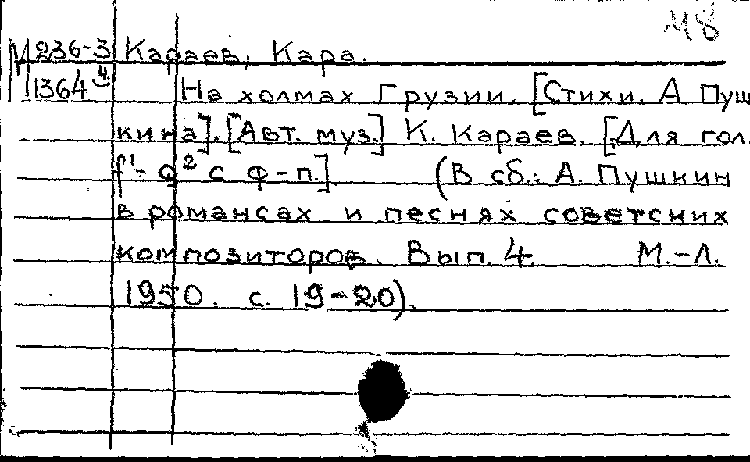 М8
М 236-3 Караев, Кара.
1364 4 На холмах Грузии. [Стихи. А Пуш
кина]. [Авт. муз.] К. Караев. [Для гол.
f¹-g² с ф-п.] (В сб.: А. Пушкин
в романсах и песнях советских
композиторов. Вып. 4. М.-Л.
1950. с. 19-20).